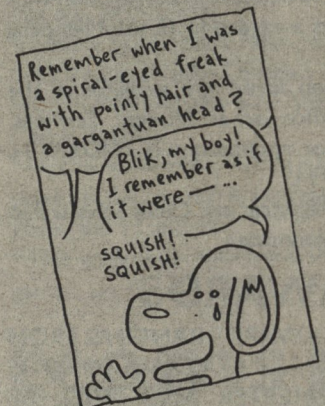 Remember when I was
a spiral-eyed freak
with pointy hair and
a gargantuan head?
Blik, my boy!
I remember as if
it were — ...
SQUISH!
SQUISH!